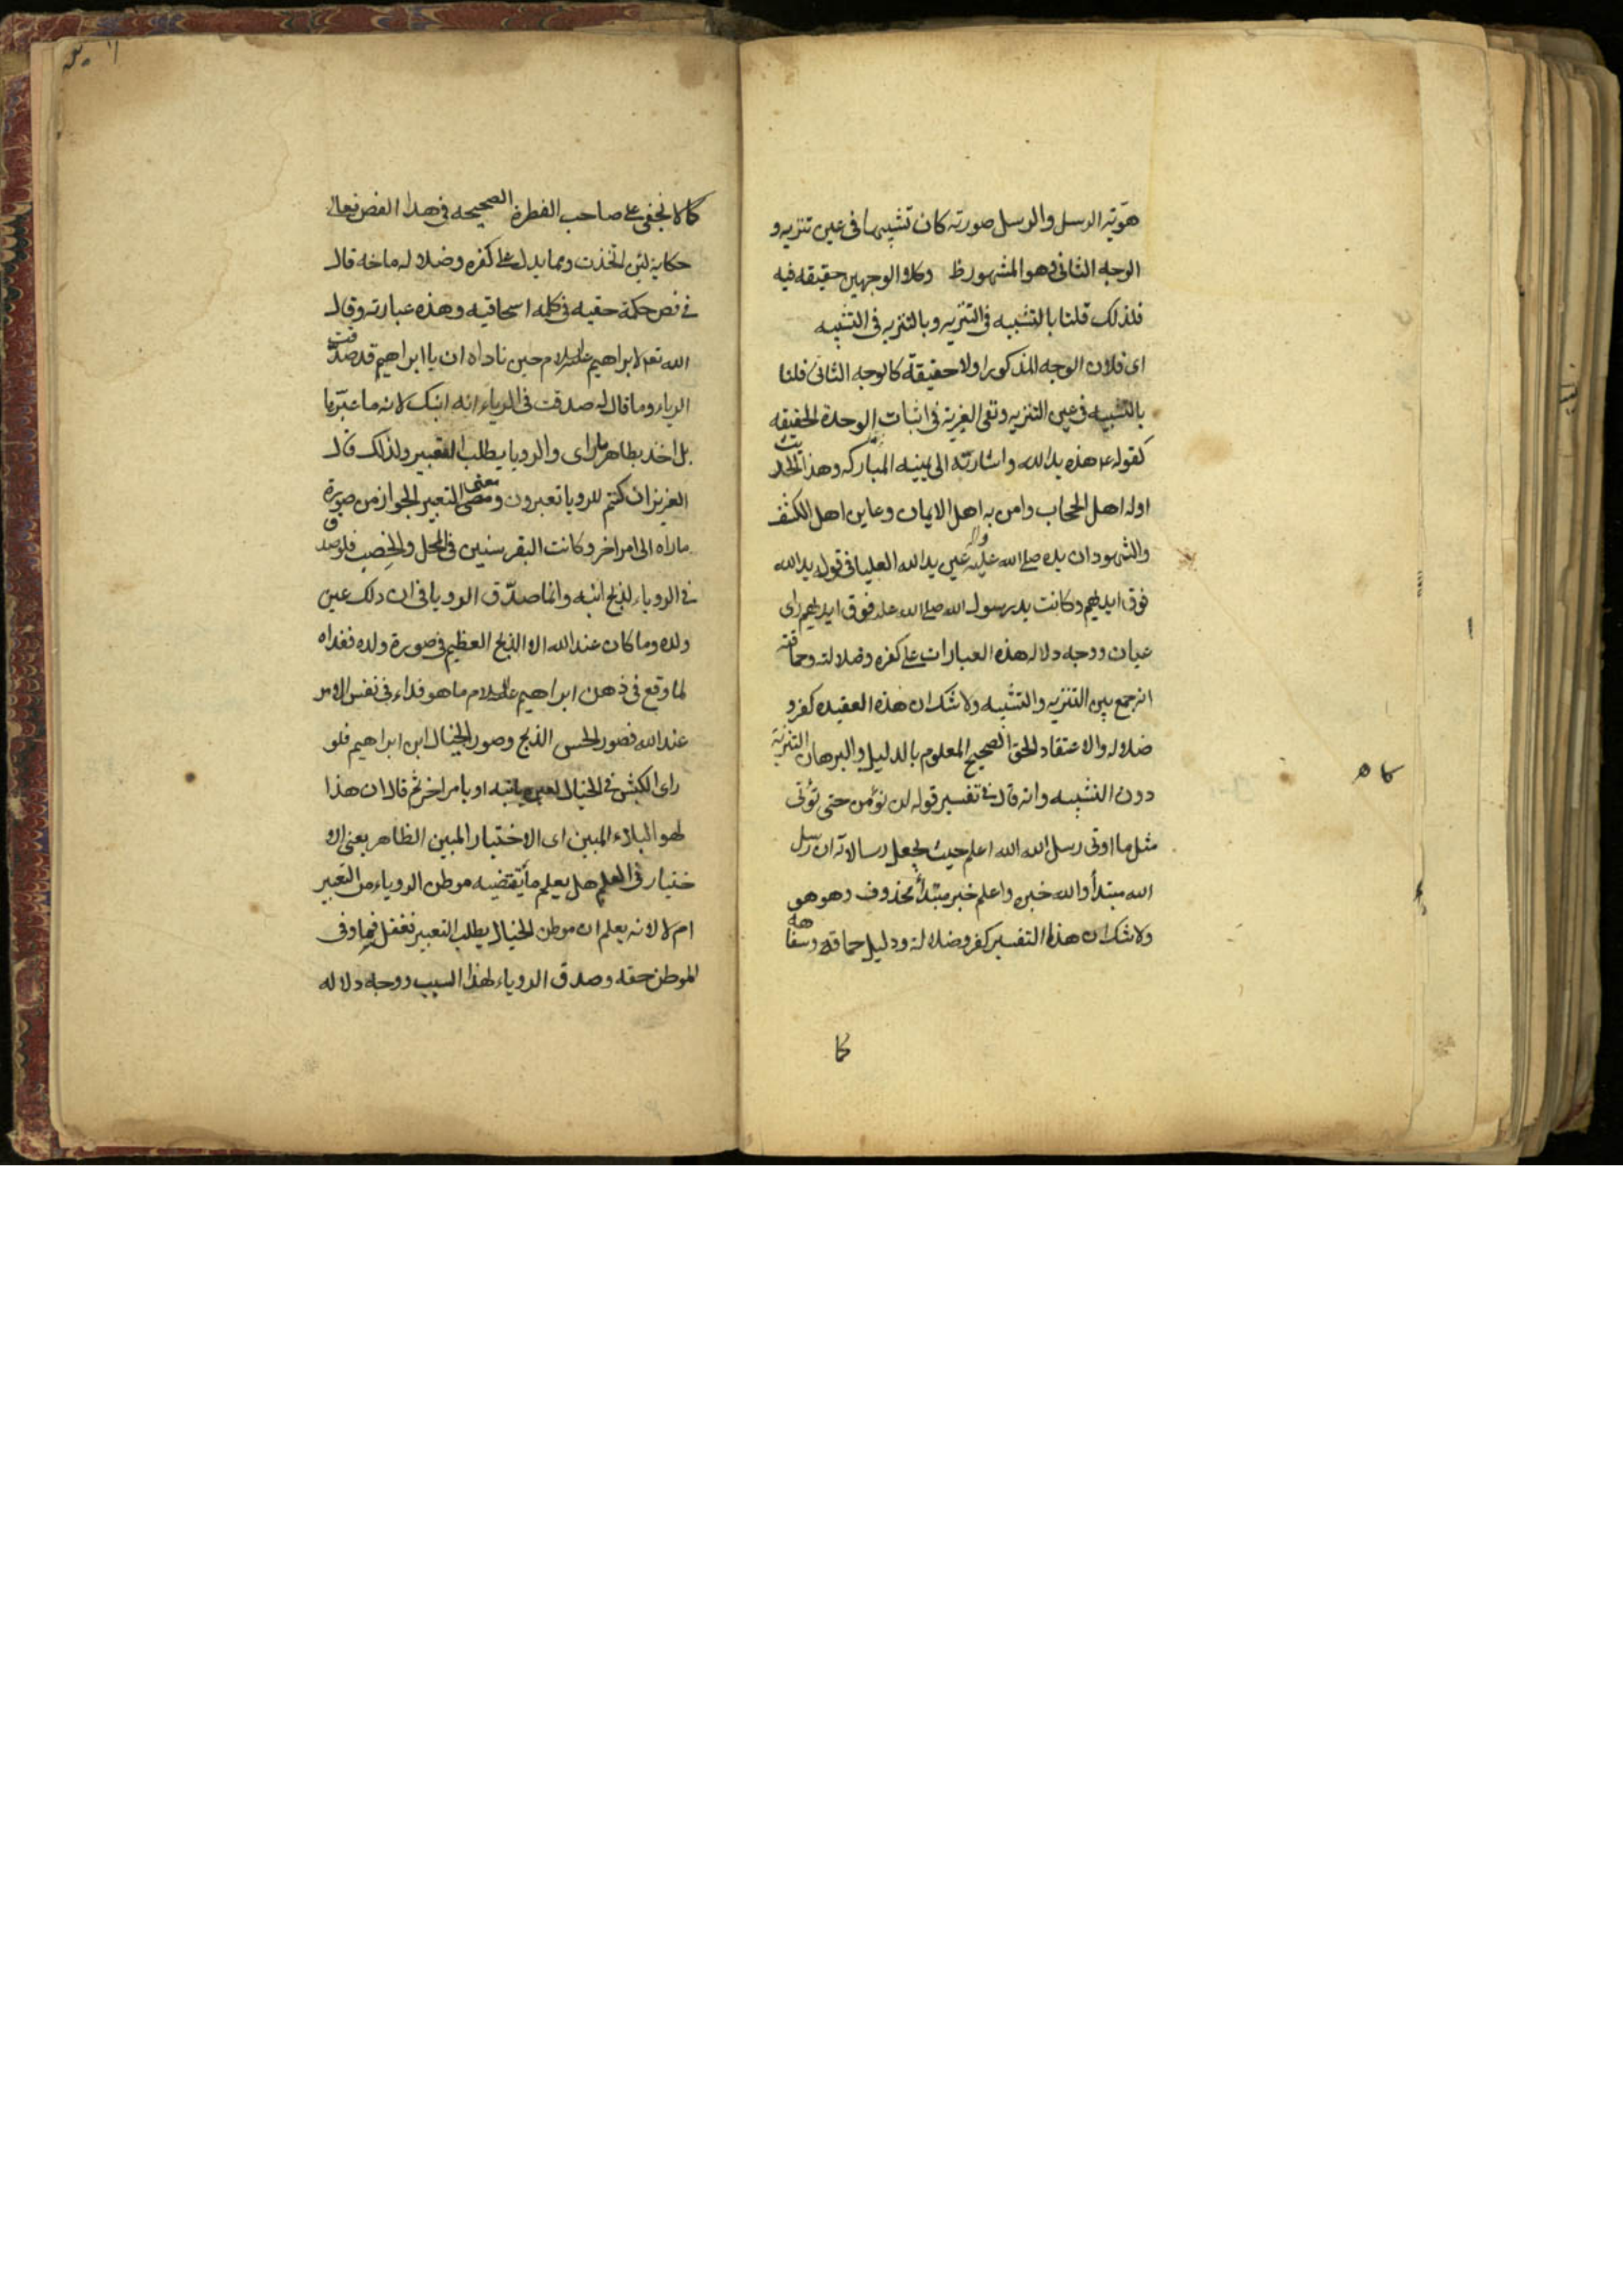 هويّته الرسل والرسل صورته كان تشبيها فى عين تنزيه و
الوجه الثانى وهو المشهور ظ وكلا الوجهين حقيقه فيه
فلذلك قلنا بالتشبيه فى التنزيه وبالتنزيه فى التشبيه
اى فلان الوجه المذكور اولا حقيقة كالوجه الثانى قلنا
بالتشبيه فى عين التنزيه ونفى الغيرية فى اثبات الوحدة الحقيقه
كقوله عم هذه يد الله واشارته الى يمينه المباركه وهذا الحديث
اوله اهل الحجاب وامن به اهل الايمان وعاين اهل الكشف
والشهود ان يده صلى الله عليه واله عين يد الله العليا فى قوله يد الله
فوق ايديهم وكانت يد رسول الله صلى الله عليه فوق ايديهم راى
عيان ووجه دلاله هذه العبارات على كفره وضلالته وحماقته
انه جمع بين التنزيه والتشبيه ولا شك ان هذه العقيده كفر و
ضلاله والاعتقاد الحق الصحيح المعلوم بالدليل والبرهان التنزيه
دون التشبيه وانه قال فى تفسير قوله لن نؤمن حتى نؤتى
مثل ما اوتى رسل الله الله اعلم حيث يجعل رسالاته ان رسل
الله مبتدأ والله خبره واعلم خبر مبتدأ محذوف وهو هو
ولا شك ان هذا التفسير كفر وضلالة ودليل حماقه وسفاهه
كما
كما لا يخفى على صاحب الفطرة الصحيحه فى هدا الفص تعالى
حكاية لئن اتخذت ومما يدل على كفره وضلاله ما خه قال
فى فص حكمة حقيه فى كلمه اسحاقيه وهذه عبارته وقال
الله تعم لابراهيم عليه السلام حين ناداه ان يا ابراهيم قد صدّقت
الريا وما قال له صدقت فى الروياء انه ابنك لانه ما عبّرها
بل اخذ بظاهر ما راى والرويا يطلب التعبير ولذلك قال
العزيز ان كنتم للرويا تعبرون ومعنى التعبير الجواز من صورة
ما راه الى امر اخر وكانت البقر سنين فى المحل والخِصب فلو صدق
فى الروياء لذبح ابنه وانما صدّق الرويا فى ان دلك عين
ولده وما كان عند الله الا الذبح العظيم فى صورة ولده ففداه
لما وقع فى ذهن ابراهيم عليه السلام ما هو فداء فى نفس الامر
عند الله فصور الحس الذبح وصور الخيال ابن ابراهيم فلو
راى الكبش فى الخيال لعبره بابنه او بامر اخر ثم قال ان هذا
لهو البلاء المبين اى الاختبار المبين الظاهر يعنى الا
ختبار فى العلم هل يعلم ما يقتضيه موطن الروياء من التعبير
ام لا لانه يعلم ان موطن الخيال يطلب التعبير فغفل فما وفى
الموطن حقه وصدق الروياء لهذا السبب ووجه دلاله